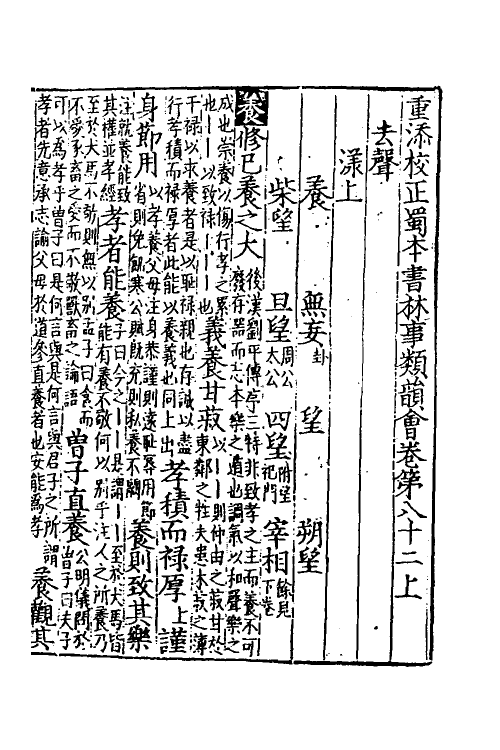 重添校正蜀本書林事類韻會卷第八十二上
去聲
漾上
養 無妄卦 望 朔望
柴望 旦望周公太公 四望附望祀門 宰相餘見下卷
養修已養之大後漢劉平傳序三特非致孝之主而養不可廢存器而志本樂之遺也調氣以和聲樂之
成也崇養以傷行孝之累也〡〡以致祿〡〡〡〡也義養甘菽以〡〡則仲由之菽甘於東鄰之牲夫患水菽之薄
干禄以求養者是以耻禄親也存誠以盡行孝積而禄厚者此能以義養也同上出孝積而禄厚上謹
身節用以孝養父母注身恭謹則遠恥辱用節省則免飢寒公賦既充則私養不闕養則致其樂
注就養能致其權並孝經孝者能養子曰今之〡〡是謂〡〡至於犬馬皆能有養不敬何以別乎注人之所養乃
至於犬馬不敬則無以別孟子曰食而不愛豕畜之愛而不敬獸畜之論語曾子直養公明儀問於曾子曰夫子
可以為孝乎曾子曰是何言與是何言與君子之所謂孝者先意承志諭父母於道參直養者也安能為孝養觀其